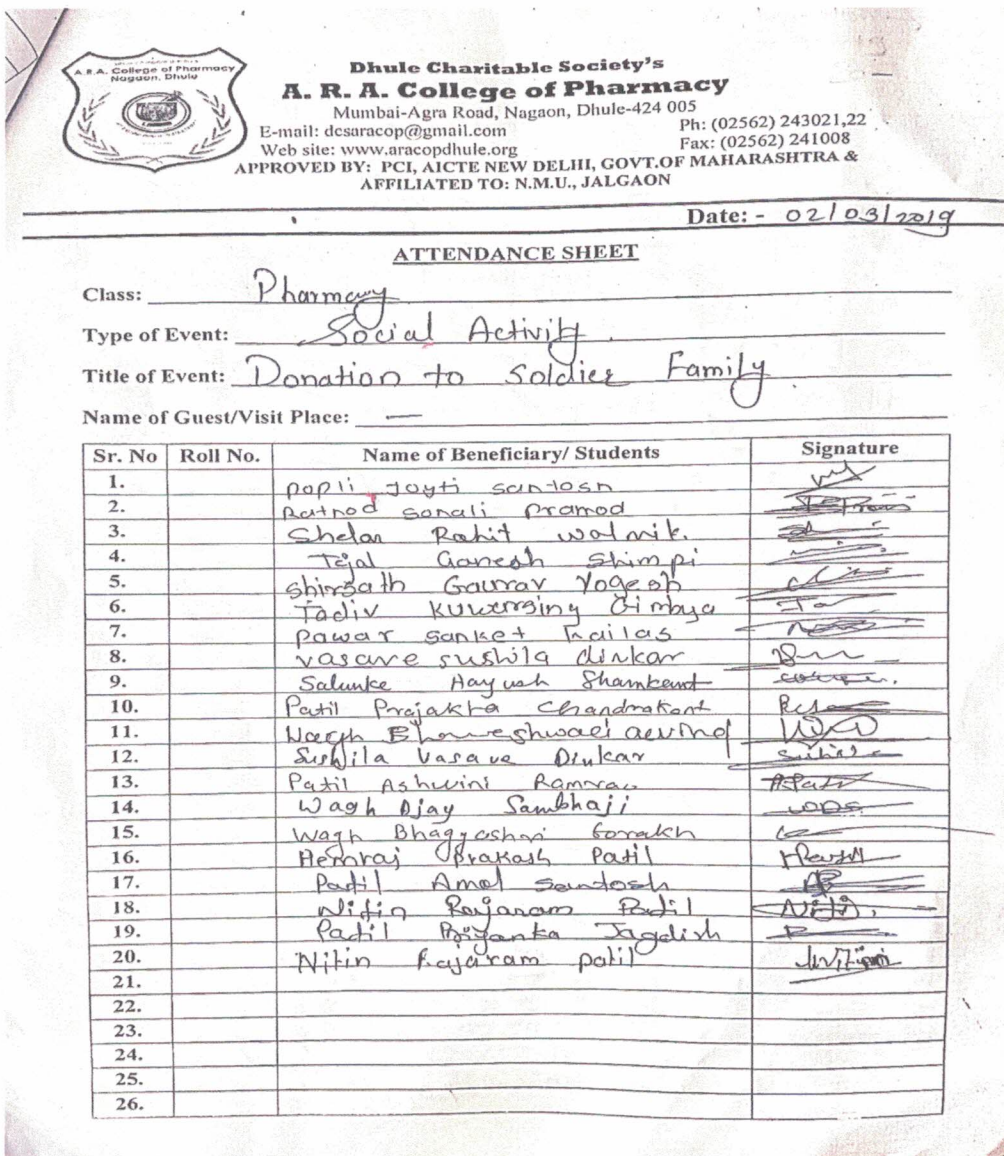 A.R.A. College of Pharmacy
Nagaon, Dhule
Dhule Charitable Society's
A. R. A. College of Pharmacy
Mumbai-Agra Road, Nagaon, Dhule-424 005
E-mail: dcsaracop@gmail.com Ph: (02562) 243021,22
Web site: www.aracopdhule.org Fax: (02562) 241008
APPROVED BY: PCI, AICTE NEW DELHI, GOVT.OF MAHARASHTRA &
AFFILIATED TO: N.M.U., JALGAON
Date: - 02/03/2019
ATTENDANCE SHEET
Class: Pharmacy
Type of Event: Social Activity.
Title of Event: Donation to Soldier Family
Name of Guest/Visit Place: —
Sr. No Roll No. Name of Beneficiary/ Students Signature
1. popli Joyti santosh
2. Ratnod sonali pramod
3. Shelar Rohit walmik.
4. Tejal Ganesh Shimpi
5. shirsath Gaurav Yogesh
6. Tadiv
7. pawar sanket kailas
8. vasave sushila dinkar
9. Salunke Hayush Shamkant
10. Patil Prajakta Chandrakant
11. Wagh arvind
12. Sushila Vasave Dinkar
13. Patil Ashwini Ramrao
14. Wagh Ajay Sambhaji
15. Wagh Bhagyashri Gorakh
16. Hemraj Prakash Patil
17. Patil Amol Santosh
18. Nitin Rajaram Patil
19. Patil Priyanka Jagdish
20. Nitin Rajaram patil
21.
22.
23.
24.
25.
26.